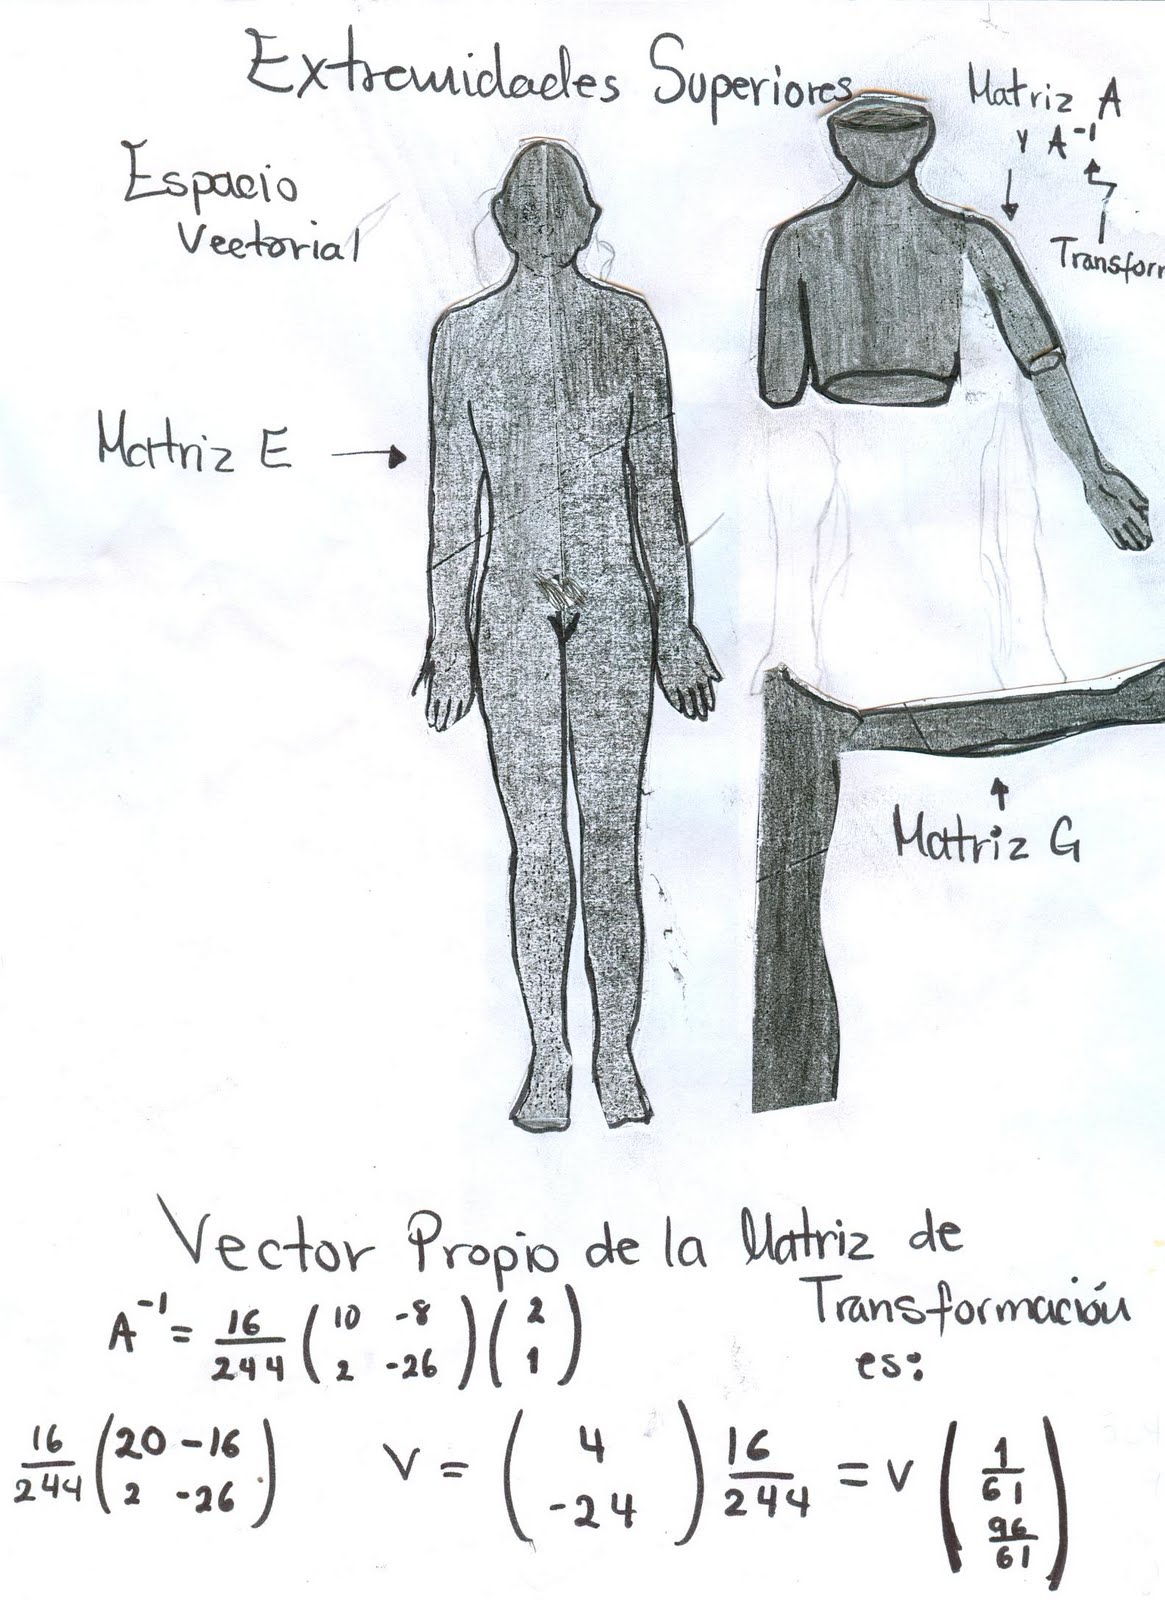 Extremidades Superiores
Matriz A
y A⁻¹
Transfor
Espacio
Vectorial
Matriz E →
Matriz G
Vector Propio de la Matriz de
Transformación
es:
A⁻¹ = 16/244 (10 -8; 2 -26)(2; 1)
16/244 (20 -16; 2 -26)  V = (4; -24) 16/244 = V (1/61; 96/61)